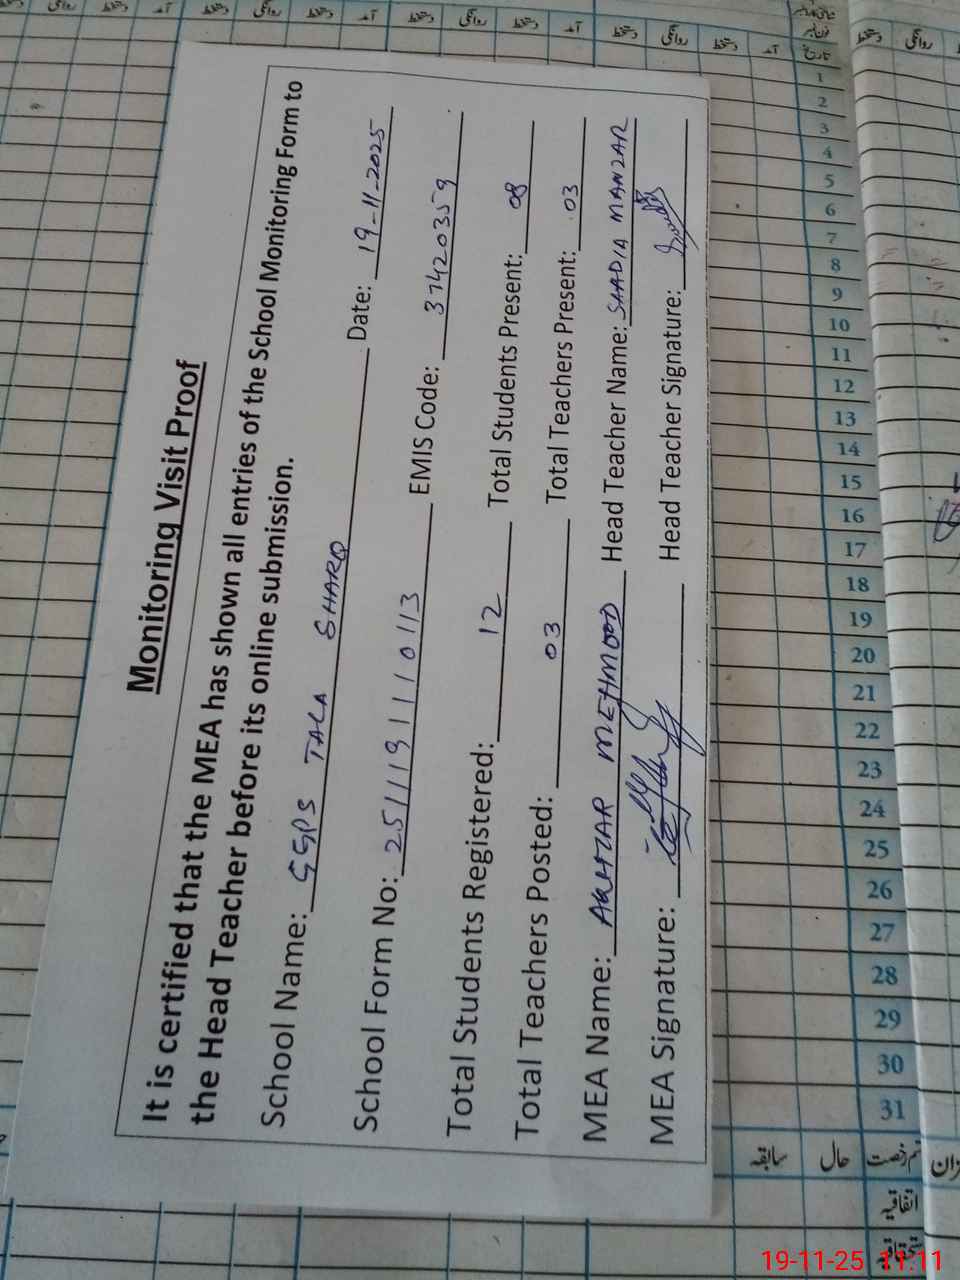 Monitoring Visit Proof
It is certified that the MEA has shown all entries of the School Monitoring Form to
the Head Teacher before its online submission.
School Name: GGPS TALA SHARQ Date: 19-11-2025
School Form No: 251119111 0113 EMIS Code: 37420359
Total Students Registered: 12 Total Students Present: 08
Total Teachers Posted: 03 Total Teachers Present: 03
MEA Name: AKHTAR MEHMOOD Head Teacher Name: SAADIA MANZAR
MEA Signature: Head Teacher Signature:
1
2
3
4
5
6
7
8
9
10
11
12
13
14
15
16
17
18
19
20
21
22
23
24
25
26
27
28
29
30
31
سابقہ
حال
اتفاقیہ
19-11-25 11:11